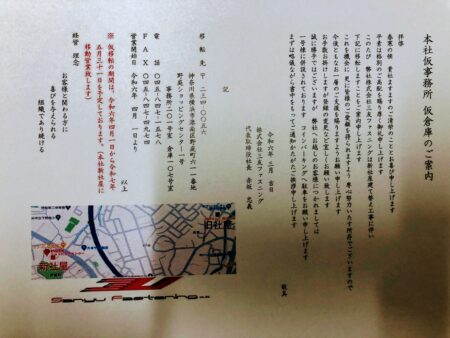 本社仮事務所 仮倉庫のご案内
拝啓
春寒の候 貴社ますますご清栄のこととお喜び申し上げます
平素は格別のご高配を賜り厚く御礼申し上げます
このたび 弊社株式会社三友ファスニングは新社屋建て替え工事に伴い
下記に移転しますことをご案内申し上げます
これを機会に 更に皆様のご愛顧を得られますよう 専心努力いたす所存でございますので
今後ともなお一層のご支援ご を賜りますようお願い申し上げます
お手数お掛けしますが登録の変更など宜しくお願い致します
誠に勝手ではございますが 弊社へお越しのお客様につきましては
一号棟に併設されております コインパーキングへ駐車をお願い申し上げます
まずは略儀ながら書中をもってご通知かたがたご挨拶申し上げます
敬具
令和六年 三月 吉日
株式会社三友ファスニング
代表取締役社長 赤坂 忠義
記
移転先 〒二三四-〇〇五六
神奈川県横浜市港南区野庭町六一一番地
野庭ショッピングセンター
事務所 二〇七号室 倉庫 一〇七号室
電話 〇四五-八四七-一五七八
ＦＡＸ 〇四五-八四七-四九七四
営業開始日 令和六年 四月 一日より
以上
※ 仮移転の期間は、令和六年四月一日から令和七年
五月三十一日を予定しております。（本社新社屋に
移動営業致します）
経営 理念
お客様と関わる方に
喜びを与えられる
組織であり続ける
旧社屋
新社屋
Sanyu Fastening